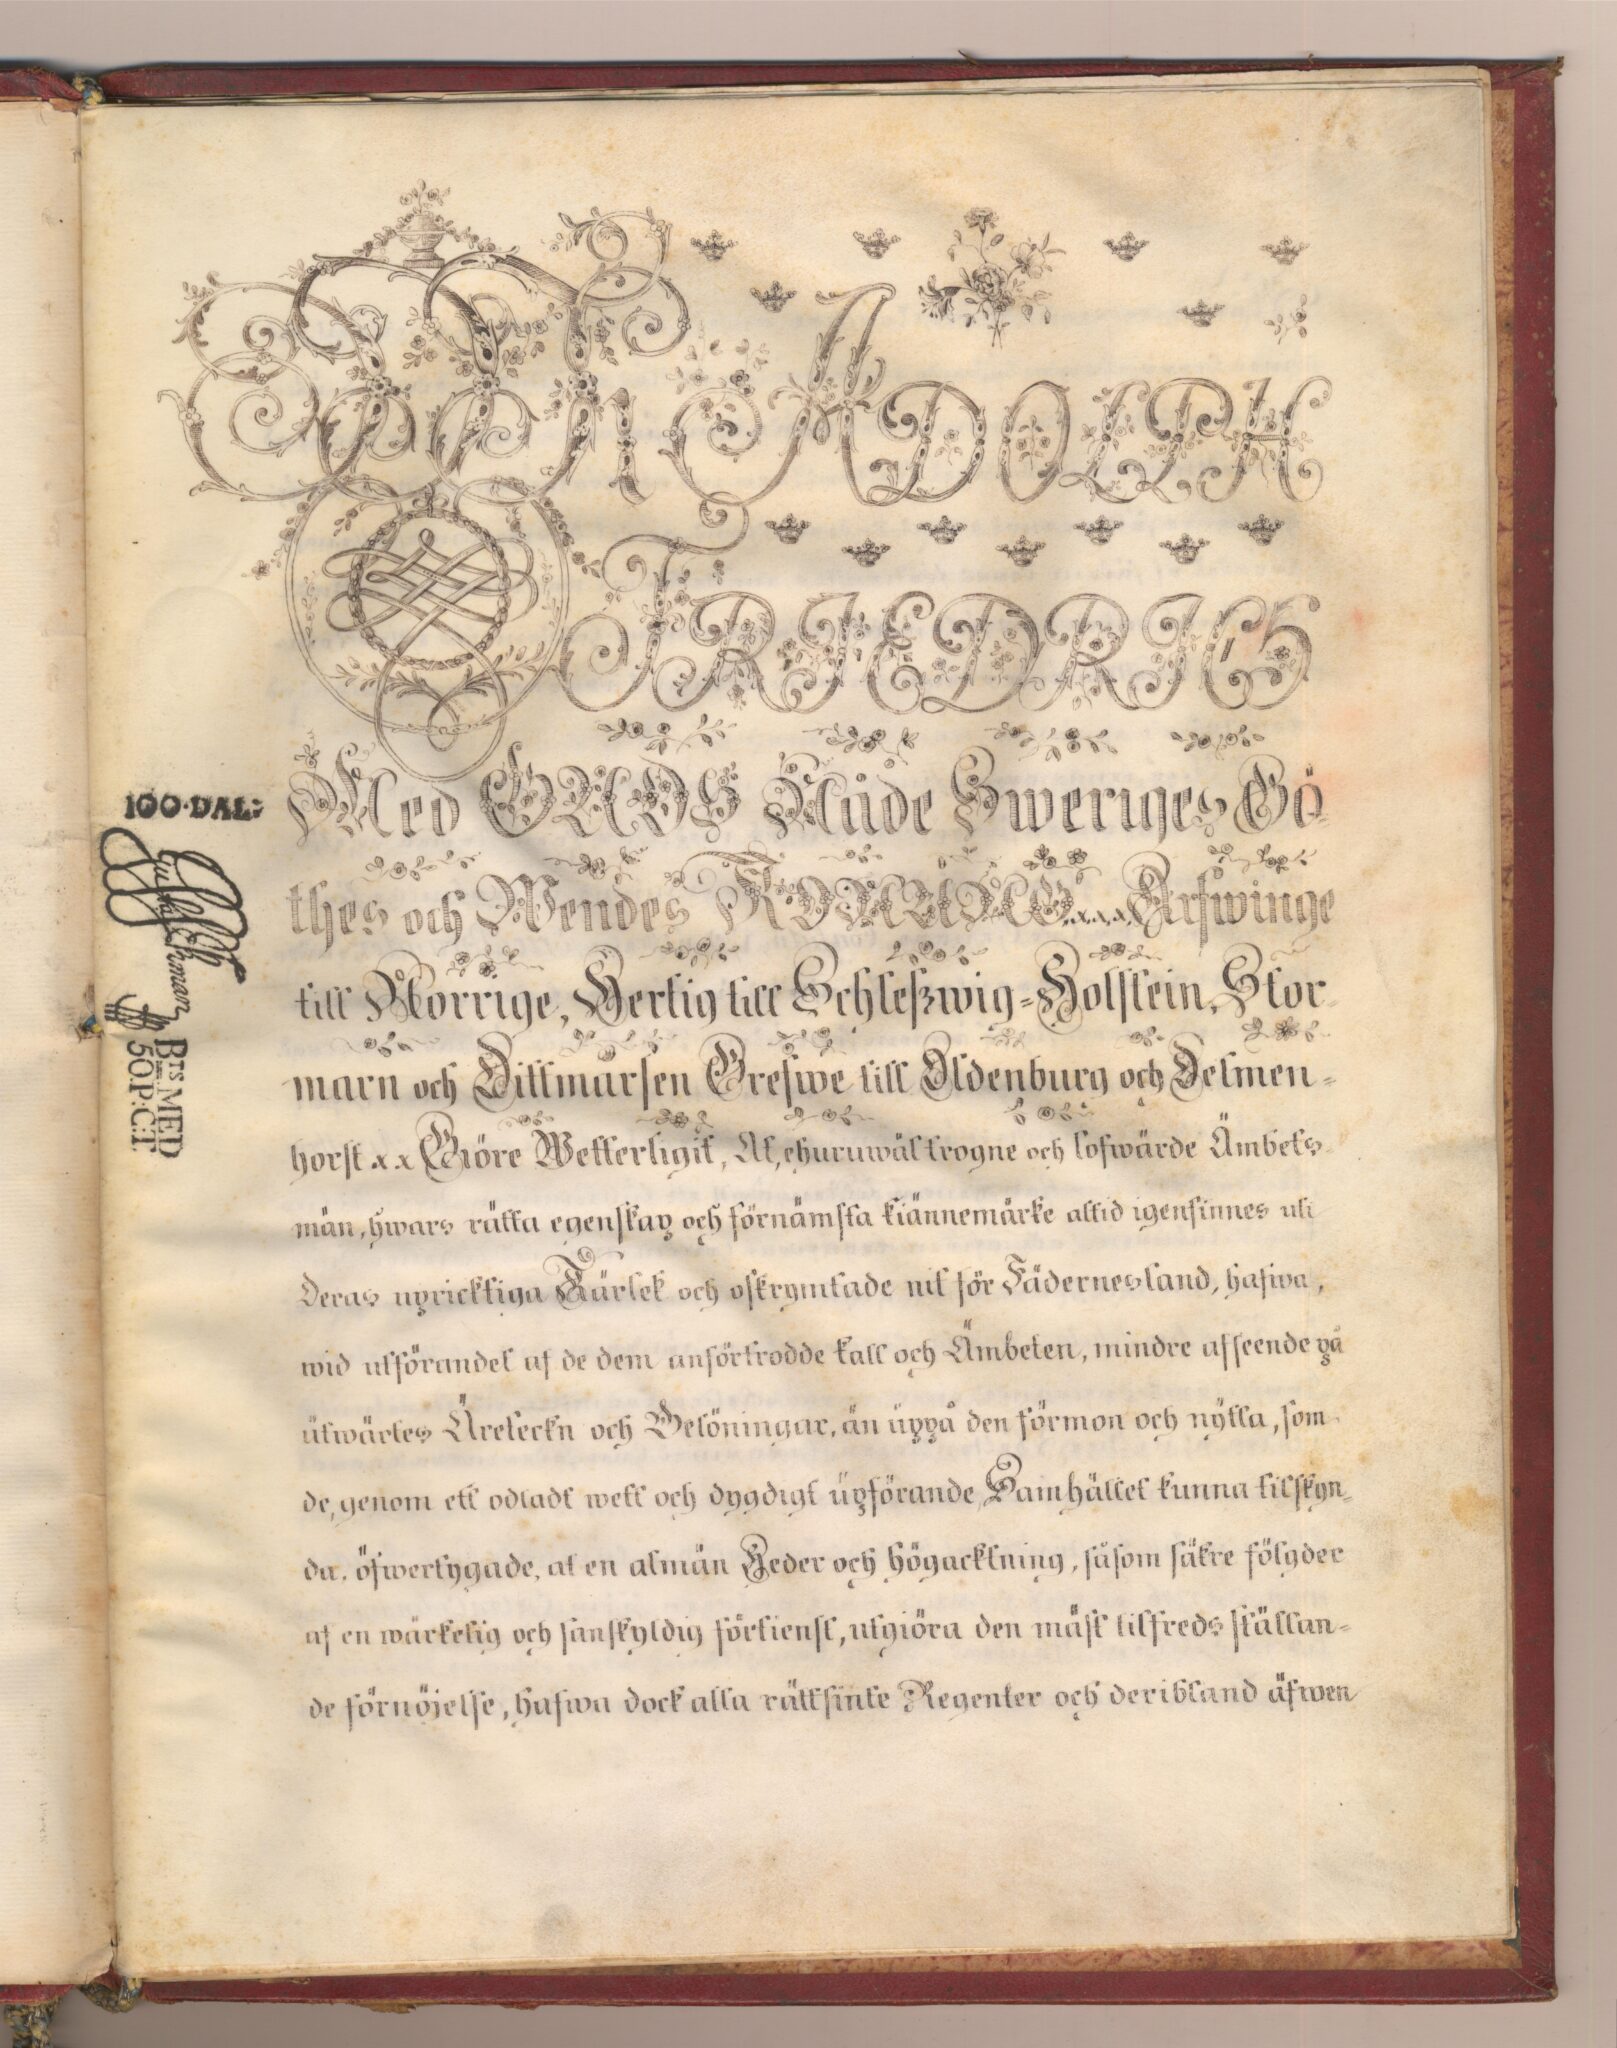 Wi ADOLPH
FRIEDRICH
Med GUDS Nåde Sweriges Gö-
thes och Wendes KONUNG x.x.x. Arfwinge
till Norrige, Hertig till Schleßwig=Holstein, Stor-
marn och Dittmarsen Grefwe till Oldenburg och Delmen=
horst x x Göre Wetterligit, At, ehuruwäl trogne och lofwärde Ämbets-
män, hwars rätta egenskap och förnämsta kiännemärke altid igenfinnes uti
deras upricktiga Kärlek och oskrymtade nit för Fädernesland, hafwa,
wid utförandet af de dem anförtrodde kall och Ämbeten, mindre afseende på
utwärtes Äreteckn och Belöningar, än uppå den förmon och nÿtta, som
de, genom ett odladt wett och dygdigt upförande, Samhället kunna tilskyn=
da, öfwertygade, at en almän Heder och högacktning, såsom säkre fölgder
af en wärkelig och sanskyldig förtienst, utgiöra den mäst tilfredsställan=
de förnöjelse, hafwa dock alla rättsinte Regenter och deribland äfwen
100·DAL:
Bts MED
50 P:C:T